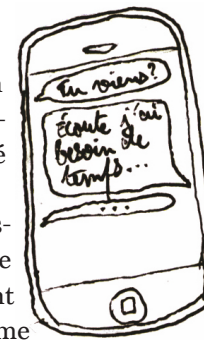 Tu viens?
Écoute j'ai
besoin de
temps...
...
é
e
nt
me